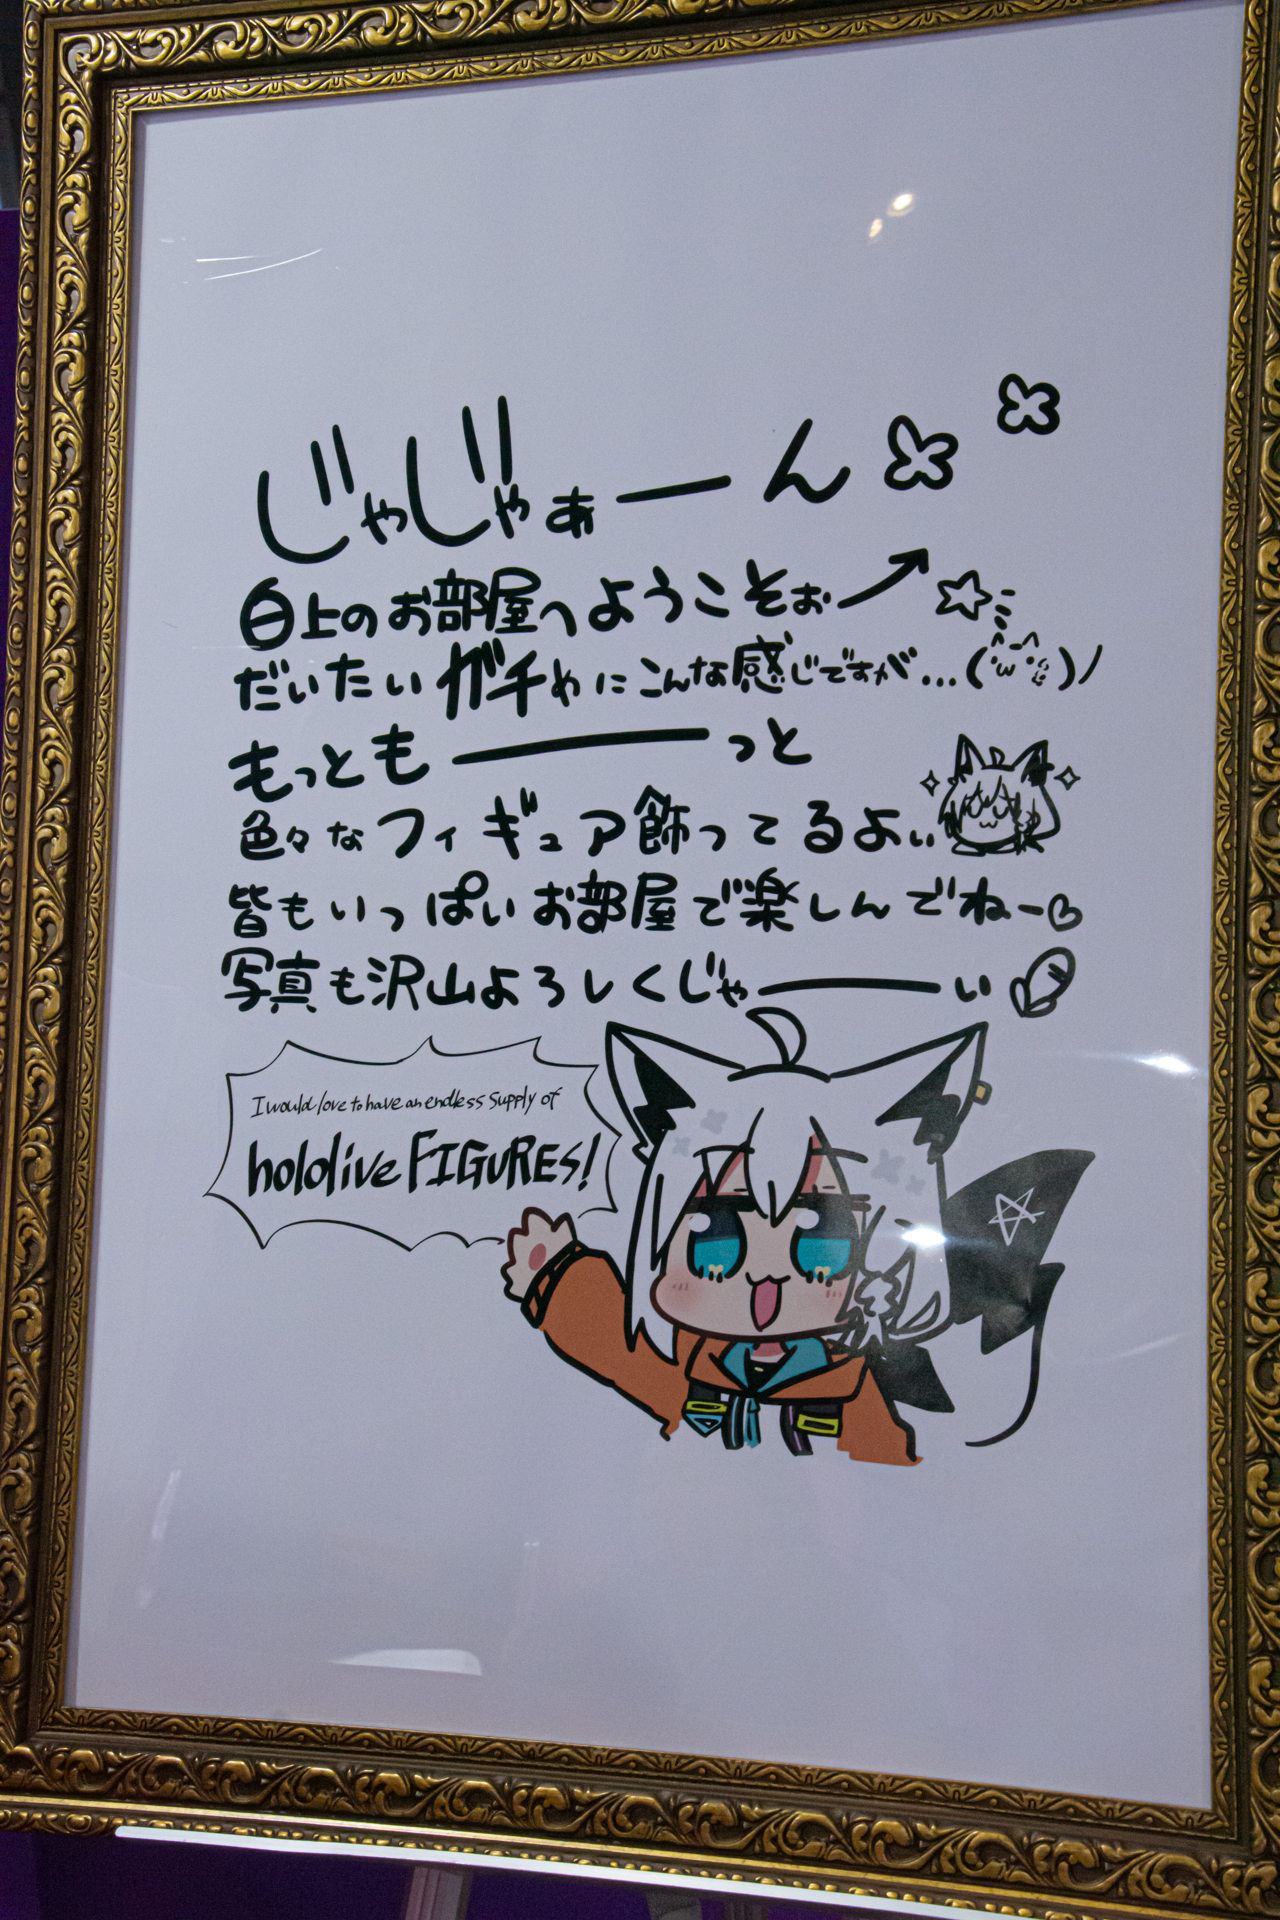 じゃじゃぁーん
白上のお部屋へようこそぉ
だいたいガチャにこんな感じですが…(・ω・)ノ
もっともーっと
色々なフィギュア飾ってるよぃ
皆もいっぱいお部屋で楽しんでねー
写真も沢山よろしくじゃーい
I would love to have an endless supply of
hololive FIGURES!